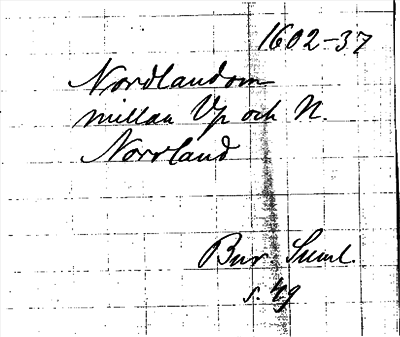 1602-37
Nordlandom
mellan Vp och N.
Norrland
Bur Suml.
s. 49